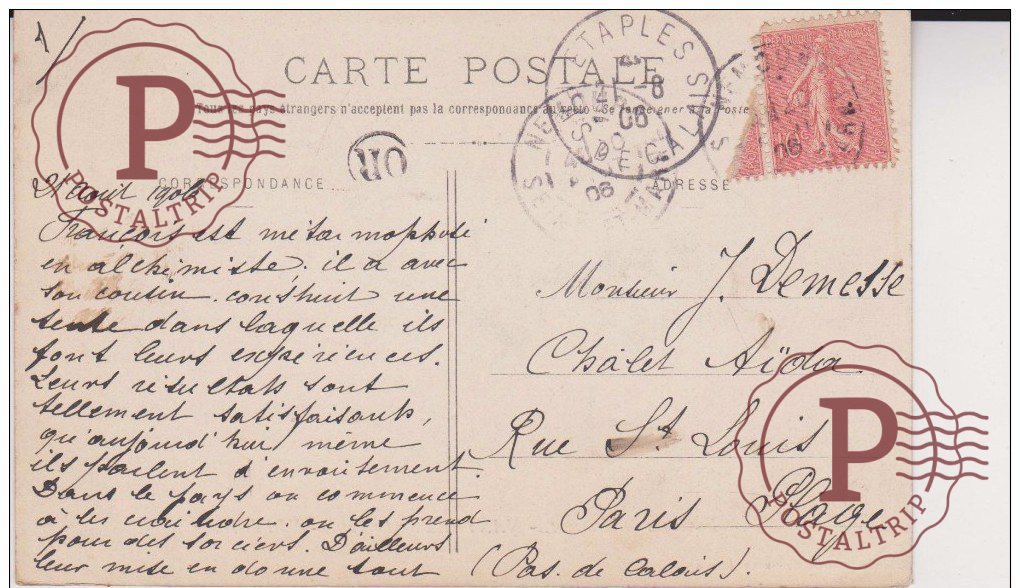 1/
CARTE POSTALE
Tous les pays étrangers n'acceptent pas la correspondance au recto (Se renseigner à la Poste
CORRESPONDANCE
ADRESSE
OR
ETAPLES
PAS DE CALAIS
-8
06
REPUBLIQUE FRANÇAISE
P
POSTALTRIP
21 Août 1906
François est métarmopposé
en alchimiste. il a avec
son cousin. construit une
tente dans laquelle ils
font leurs expériences.
Leurs résultats sont
tellement satisfaisants,
qu'aujourd'hui même
ils parlent d'envoûtement.
Dans le pays on commence
à les craindre. on les prend
pour des sorciers. D'ailleurs
leur mise en donne tout
Monsieur J. Demesse
Châlet Aïda
Rue St Louis
Paris Plage
(Pas. de Calais).
P
POSTALTRIP